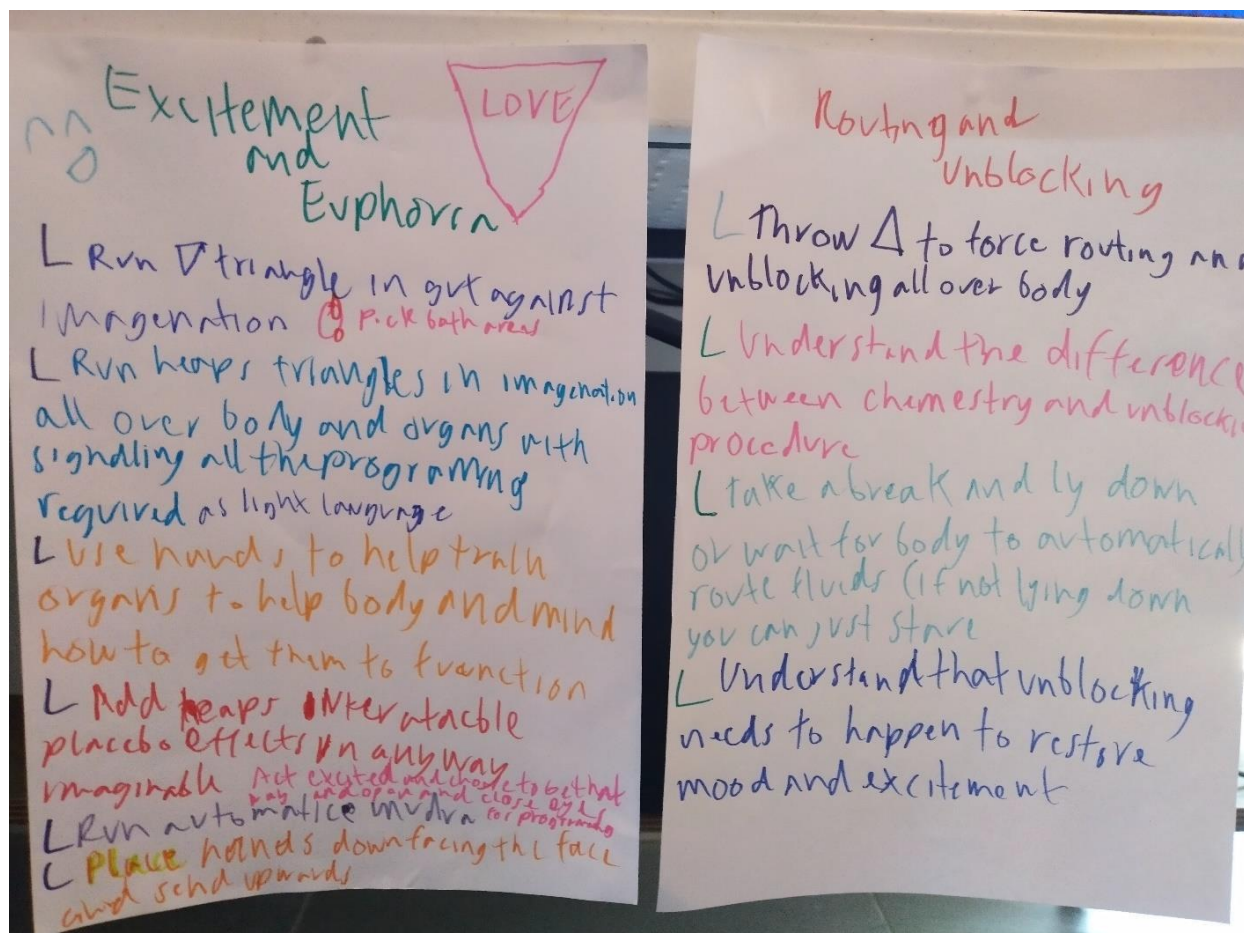 Excitement
and
Euphoria
LOVE
L Run ▽ triangle in gut against
imagenation pick both areas
L Run heaps triangles in imagenation
all over body and organs with
signalling all the programing
required as light language
L Use hands to help train
organs to help body and mind
how to get them to function
L Add heaps
placebo effects in anyway
imaginable Act excited and choose to be that
way and open and close eyes
L Run automatice mudra for programing
L Place hands down facing the face
and send upwards
Routing and
unblocking
L Throw △ to force routing an
unblocking all over body
L Understand the difference
between chemestry and unblocki
procedure
L take a break and ly down
or wait for body to automatically
route fluids (if not lying down
you can just stare
L Understand that unblocking
needs to happen to restore
mood and excitement